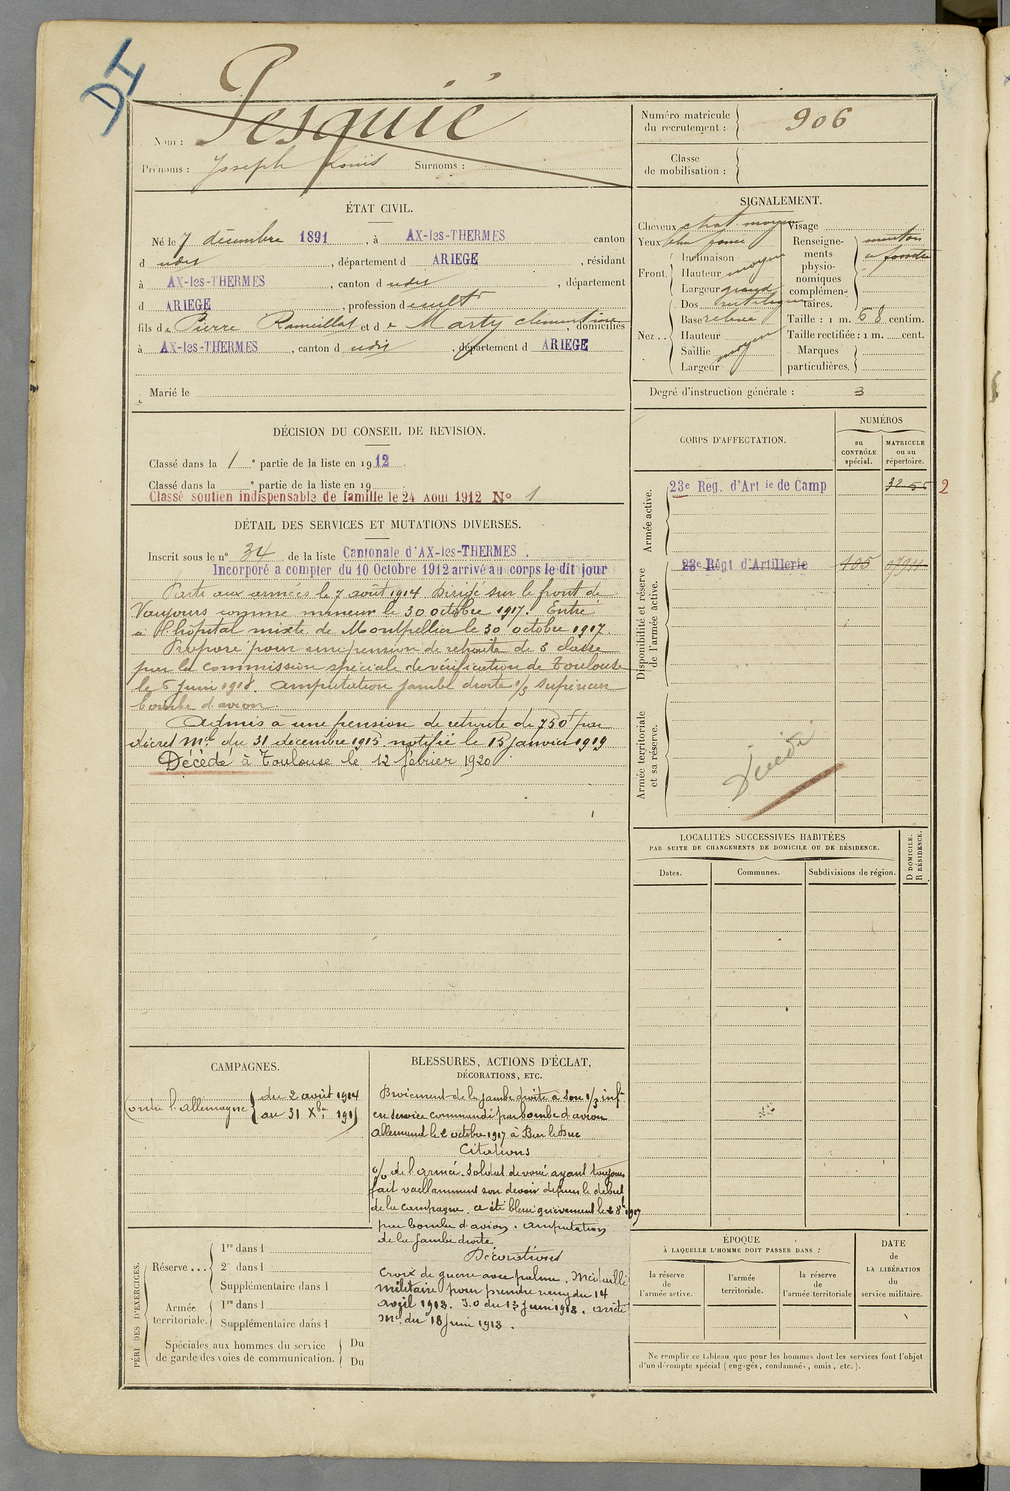 DI
Nom : Pesquié
Prénoms : Joseph Louis Surnoms :
Numéro matricule du recrutement : 906
Classe de mobilisation :
ÉTAT CIVIL.
Né le 7 décembre 1891, à AX-les-THERMES canton
d udit, département d ARIEGE, résidant
à AX-les-THERMES, canton d udit, département
d ARIEGE, profession de cultr
fils de Pierre Ramillat et de Marty Clémentine, domiciliés
à AX-les-THERMES, canton d udit, département d ARIEGE
Marié le
SIGNALEMENT.
Cheveux chat moyen
Yeux bleu jaune
Front. Inclinaison
Hauteur moyen
Largeur grande
Nez . . Dos rectiligne
Base relevé
Hauteur
Saillie moyen
Largeur
Visage
Renseignements physionomiques complémentaires. menton à fossette
Taille : 1 m. 68 centim.
Taille rectifiée : 1 m. cent.
Marques particulières.
Degré d'instruction générale : 3
DÉCISION DU CONSEIL DE REVISION.
Classé dans la 1e partie de la liste en 1912.
Classé dans la e partie de la liste en 19
Classé soutien indispensable de famille le 24 Aout 1912 N° 1
DÉTAIL DES SERVICES ET MUTATIONS DIVERSES.
Inscrit sous le n° 34 de la liste Cantonale d'AX-les-THERMES.
Incorporé a compter du 10 Octobre 1912 arrivé au corps le dit jour
Parti aux armées le 7 août 1914. Dirigé sur le front de
Vaujours comme mineur le 30 octobre 1917. Entré
à l'hôpital mixte de Montpellier le 30 octobre 1917.
Proposé pour une pension de retraite de 5 classe
par la commission spéciale de vérification de Toulouse
le 6 juin 1918. Amputation jambe droite 1/3 supérieur
bombe d'avion.
Admis à une pension de retraite de 750f par
décret Mel du 31 décembre 1915 notifié le 15 janvier 1919
Décédé à Toulouse le 12 février 1920
CORPS D'AFFECTATION.
NUMÉROS
au CONTRÔLE spécial.
MATRICULE ou au répertoire.
Armée active.
23e Reg. d'Art ie de Camp 2
Disponibilité et réserve de l'armée active.
23e Régt d'Artillerie 105
Armée territoriale et sa réserve.
Décédé
LOCALITÉS SUCCESSIVES HABITÉES
PAR SUITE DE CHANGEMENTS DE DOMICILE OU DE RÉSIDENCE.
Dates.
Communes.
Subdivisions de région.
D DOMICILE.
R RÉSIDENCE.
CAMPAGNES.
Contre l'Allemagne du 2 août 1914
au 31 Xbre 1915
BLESSURES, ACTIONS D'ÉCLAT,
DÉCORATIONS, ETC.
Broiement de la jambe droite à son 1/3 infr
en service commandé par bombe d'avion
allemand le 2 octobre 1917 à Bar le Duc
Citations
o/o de l'armée. Soldat dévoué ayant toujours
fait vaillamment son devoir depuis le début
de la campagne. a été blessé grièvement le 2 8bre 1917
par bombe d'avion. Amputation
de la jambe droite
Décorations
Croix de guerre avec palme. Médaille
militaire pour prendre rang du 14
avril 1918. J.O du 13 juin 1918. arrêté
Mel du 18 juin 1918.
PÉRIODES D'EXERCICES.
Réserve . . . 1re dans l
2e dans l
Supplémentaire dans l
Armée territoriale. 1re dans l
Supplémentaire dans l
Spéciales aux hommes du service de garde des voies de communication. Du
Du
ÉPOQUE
À LAQUELLE L'HOMME DOIT PASSER DANS :
la réserve de l'armée active.
l'armée territoriale.
la réserve de l'armée territoriale
DATE de LA LIBÉRATION du service militaire.
Ne remplir ce tableau que pour les hommes dont les services font l'objet
d'un décompte spécial (engagés, condamnés, omis, etc.).